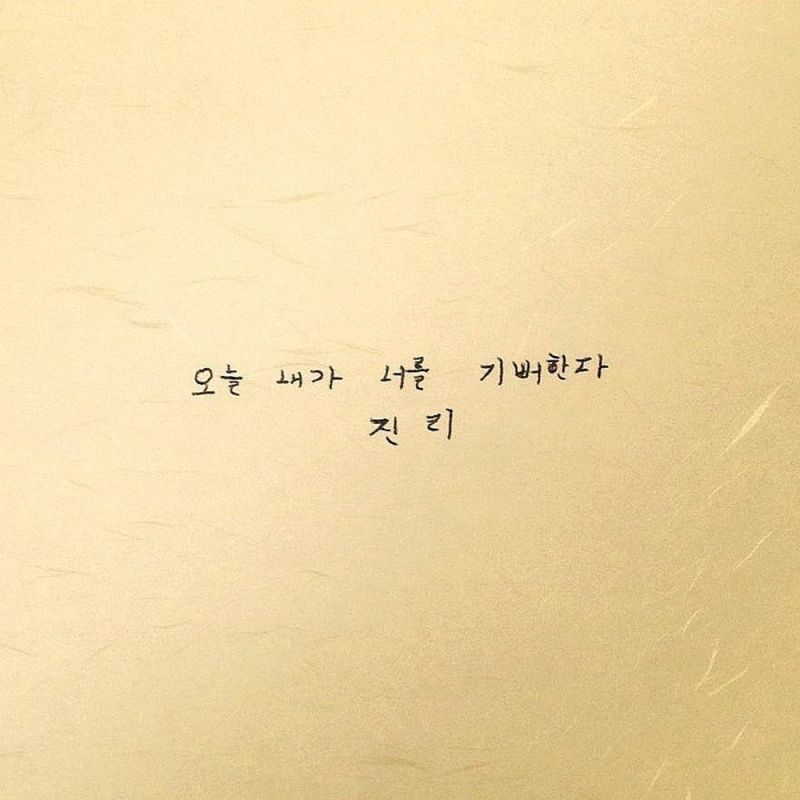 오늘 내가 너를 기뻐한다
진리